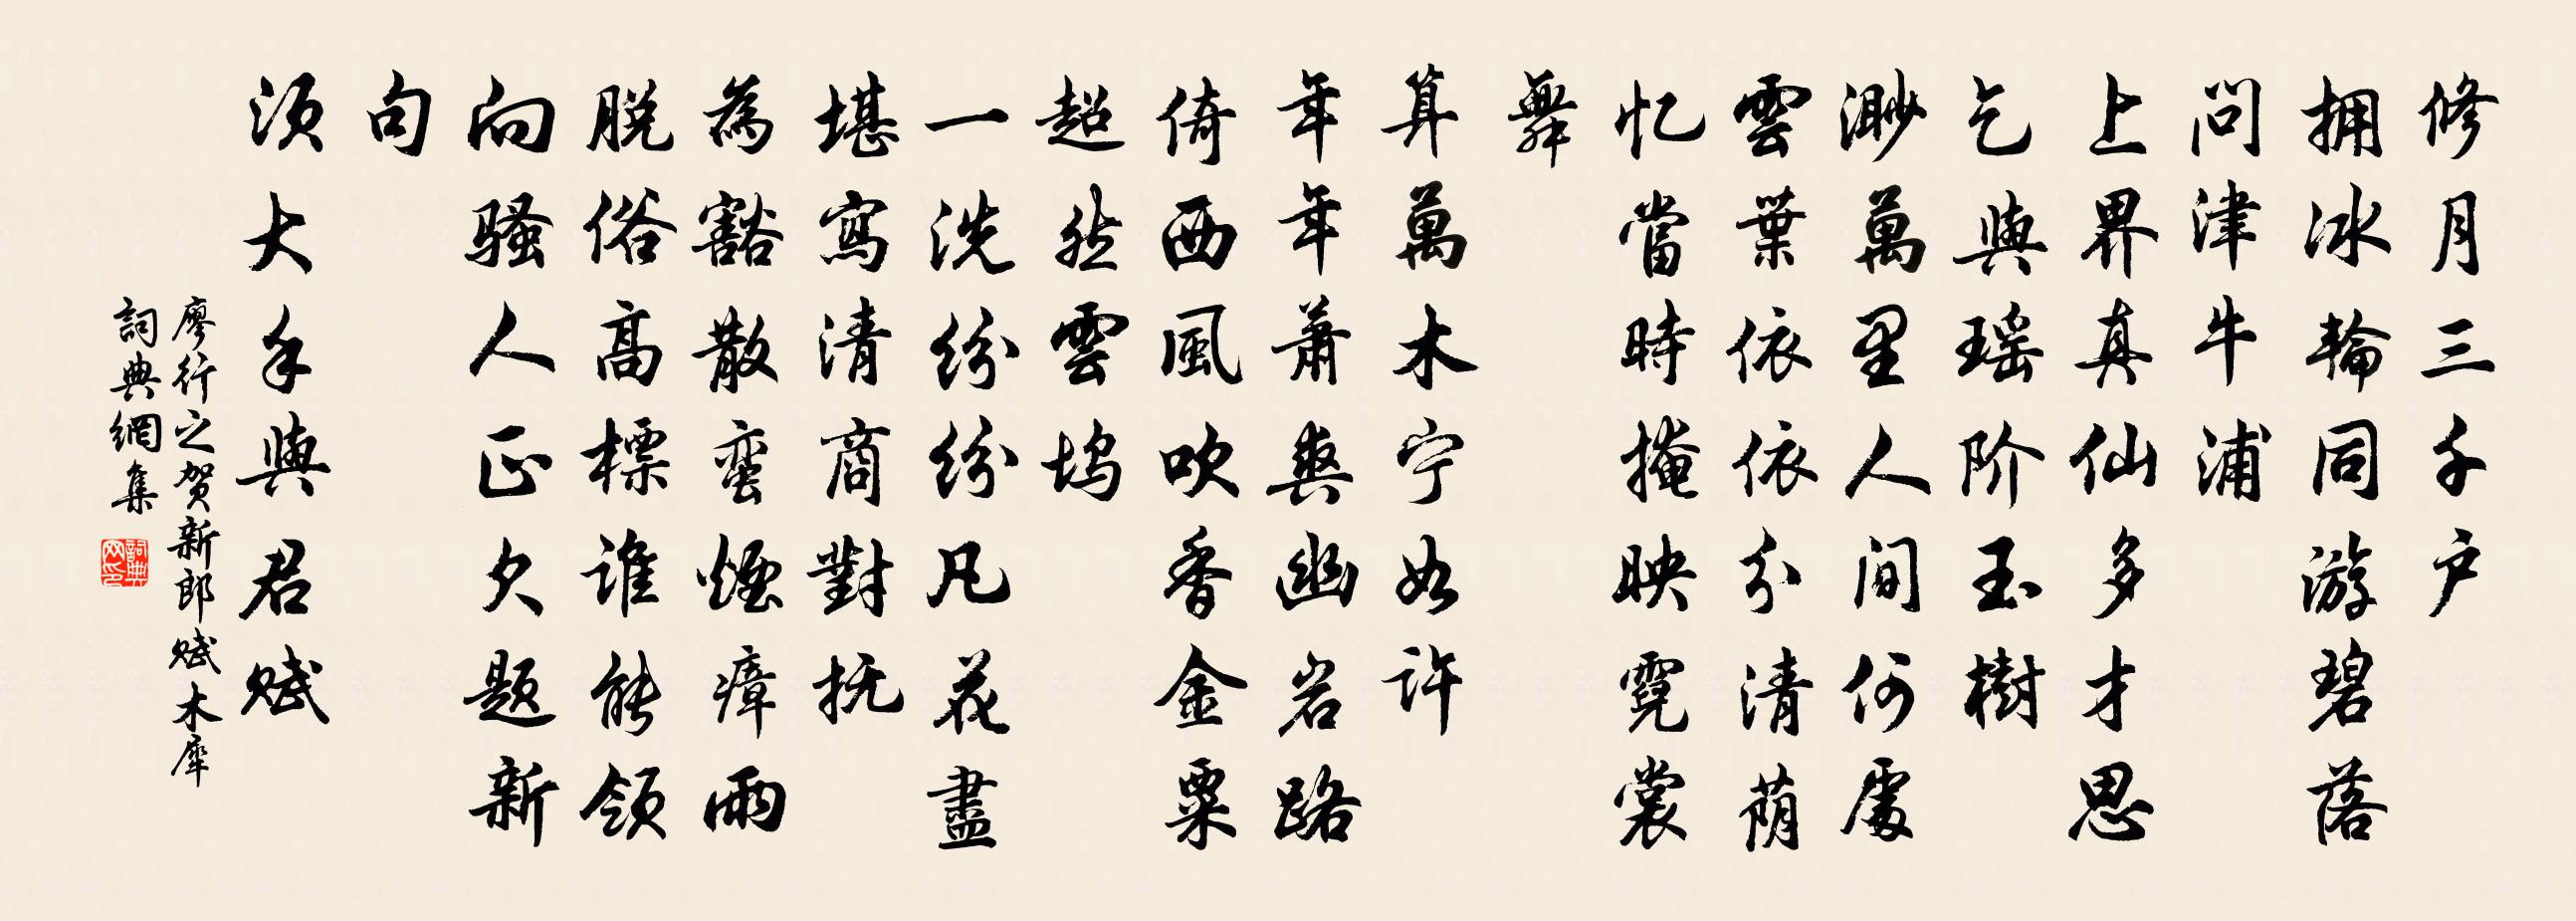 修月三千户
拥冰輪同游碧落
问津牛浦
上界真仙多才思
乞與瑶阶玉樹
渺萬里人间何處
雲葉依依分清荫
忆當時掩映霓裳
舞
算萬木宁如许
年年萧爽幽岩路
倚西風吹香金粟
超然雲坞
一洗纷纷凡花盡
堪寫清商對抚
為豁散蛮煙瘴雨
脱俗高標谁能领
向骚人正欠题新
句
须大手與君赋
廖行之贺新郎赋木犀
詞典網集
詞典网印